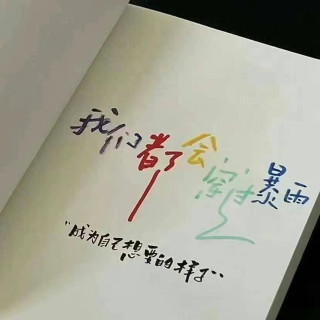 我们都会穿过暴雨
“成为自己想要的样子”